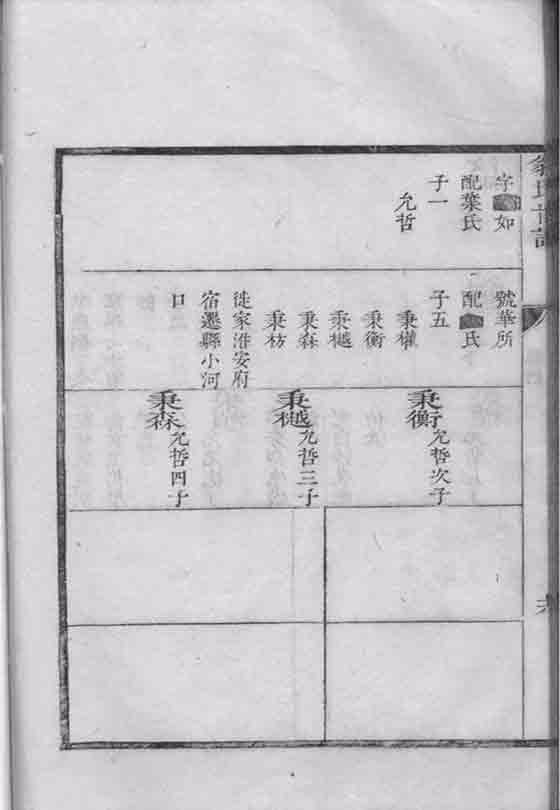 字 如
配葉氏
子一
允哲
號華所
配 氏
子五
秉權
秉衡
秉樾
秉森
秉枋
徙家淮安府
宿遷縣小河
口
秉衡 允哲次子
秉樾 允哲三子
秉森 允哲四子